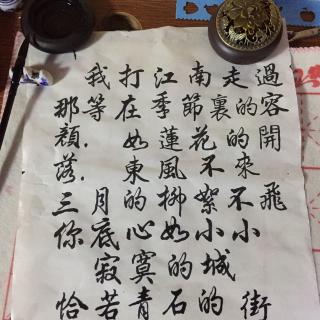 我打江南走過
那等在季節裏的容
顏.如蓮花的開
落.東風不來
三月的柳絮不飛
你底心如小小
寂寞的城
恰若青石的街